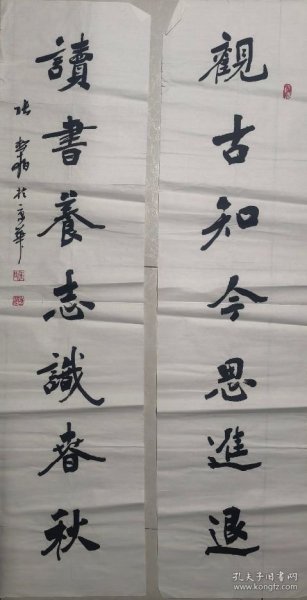 觀古知今思進退
讀書養志識春秋
孔夫子旧书网